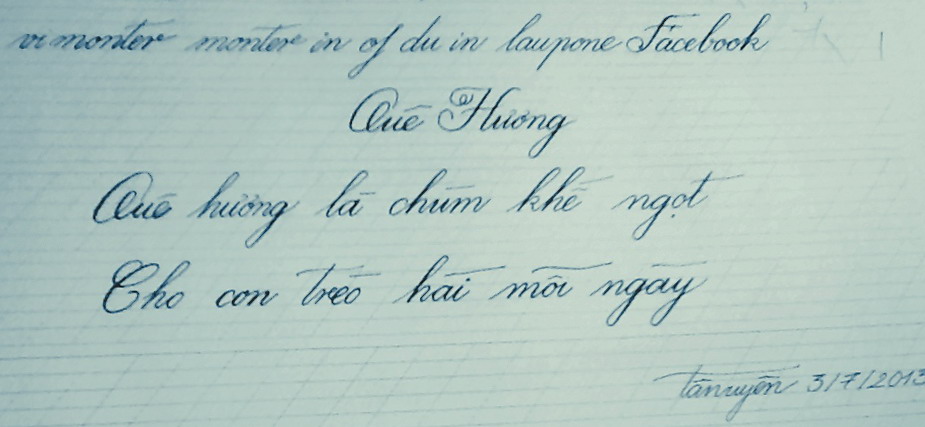 vi monter monter in of du in laupone Facebook
Quê Hương
Quê hương là chùm khế ngọt
Cho con trèo hái mỗi ngày
tânuyên 3/7/2013